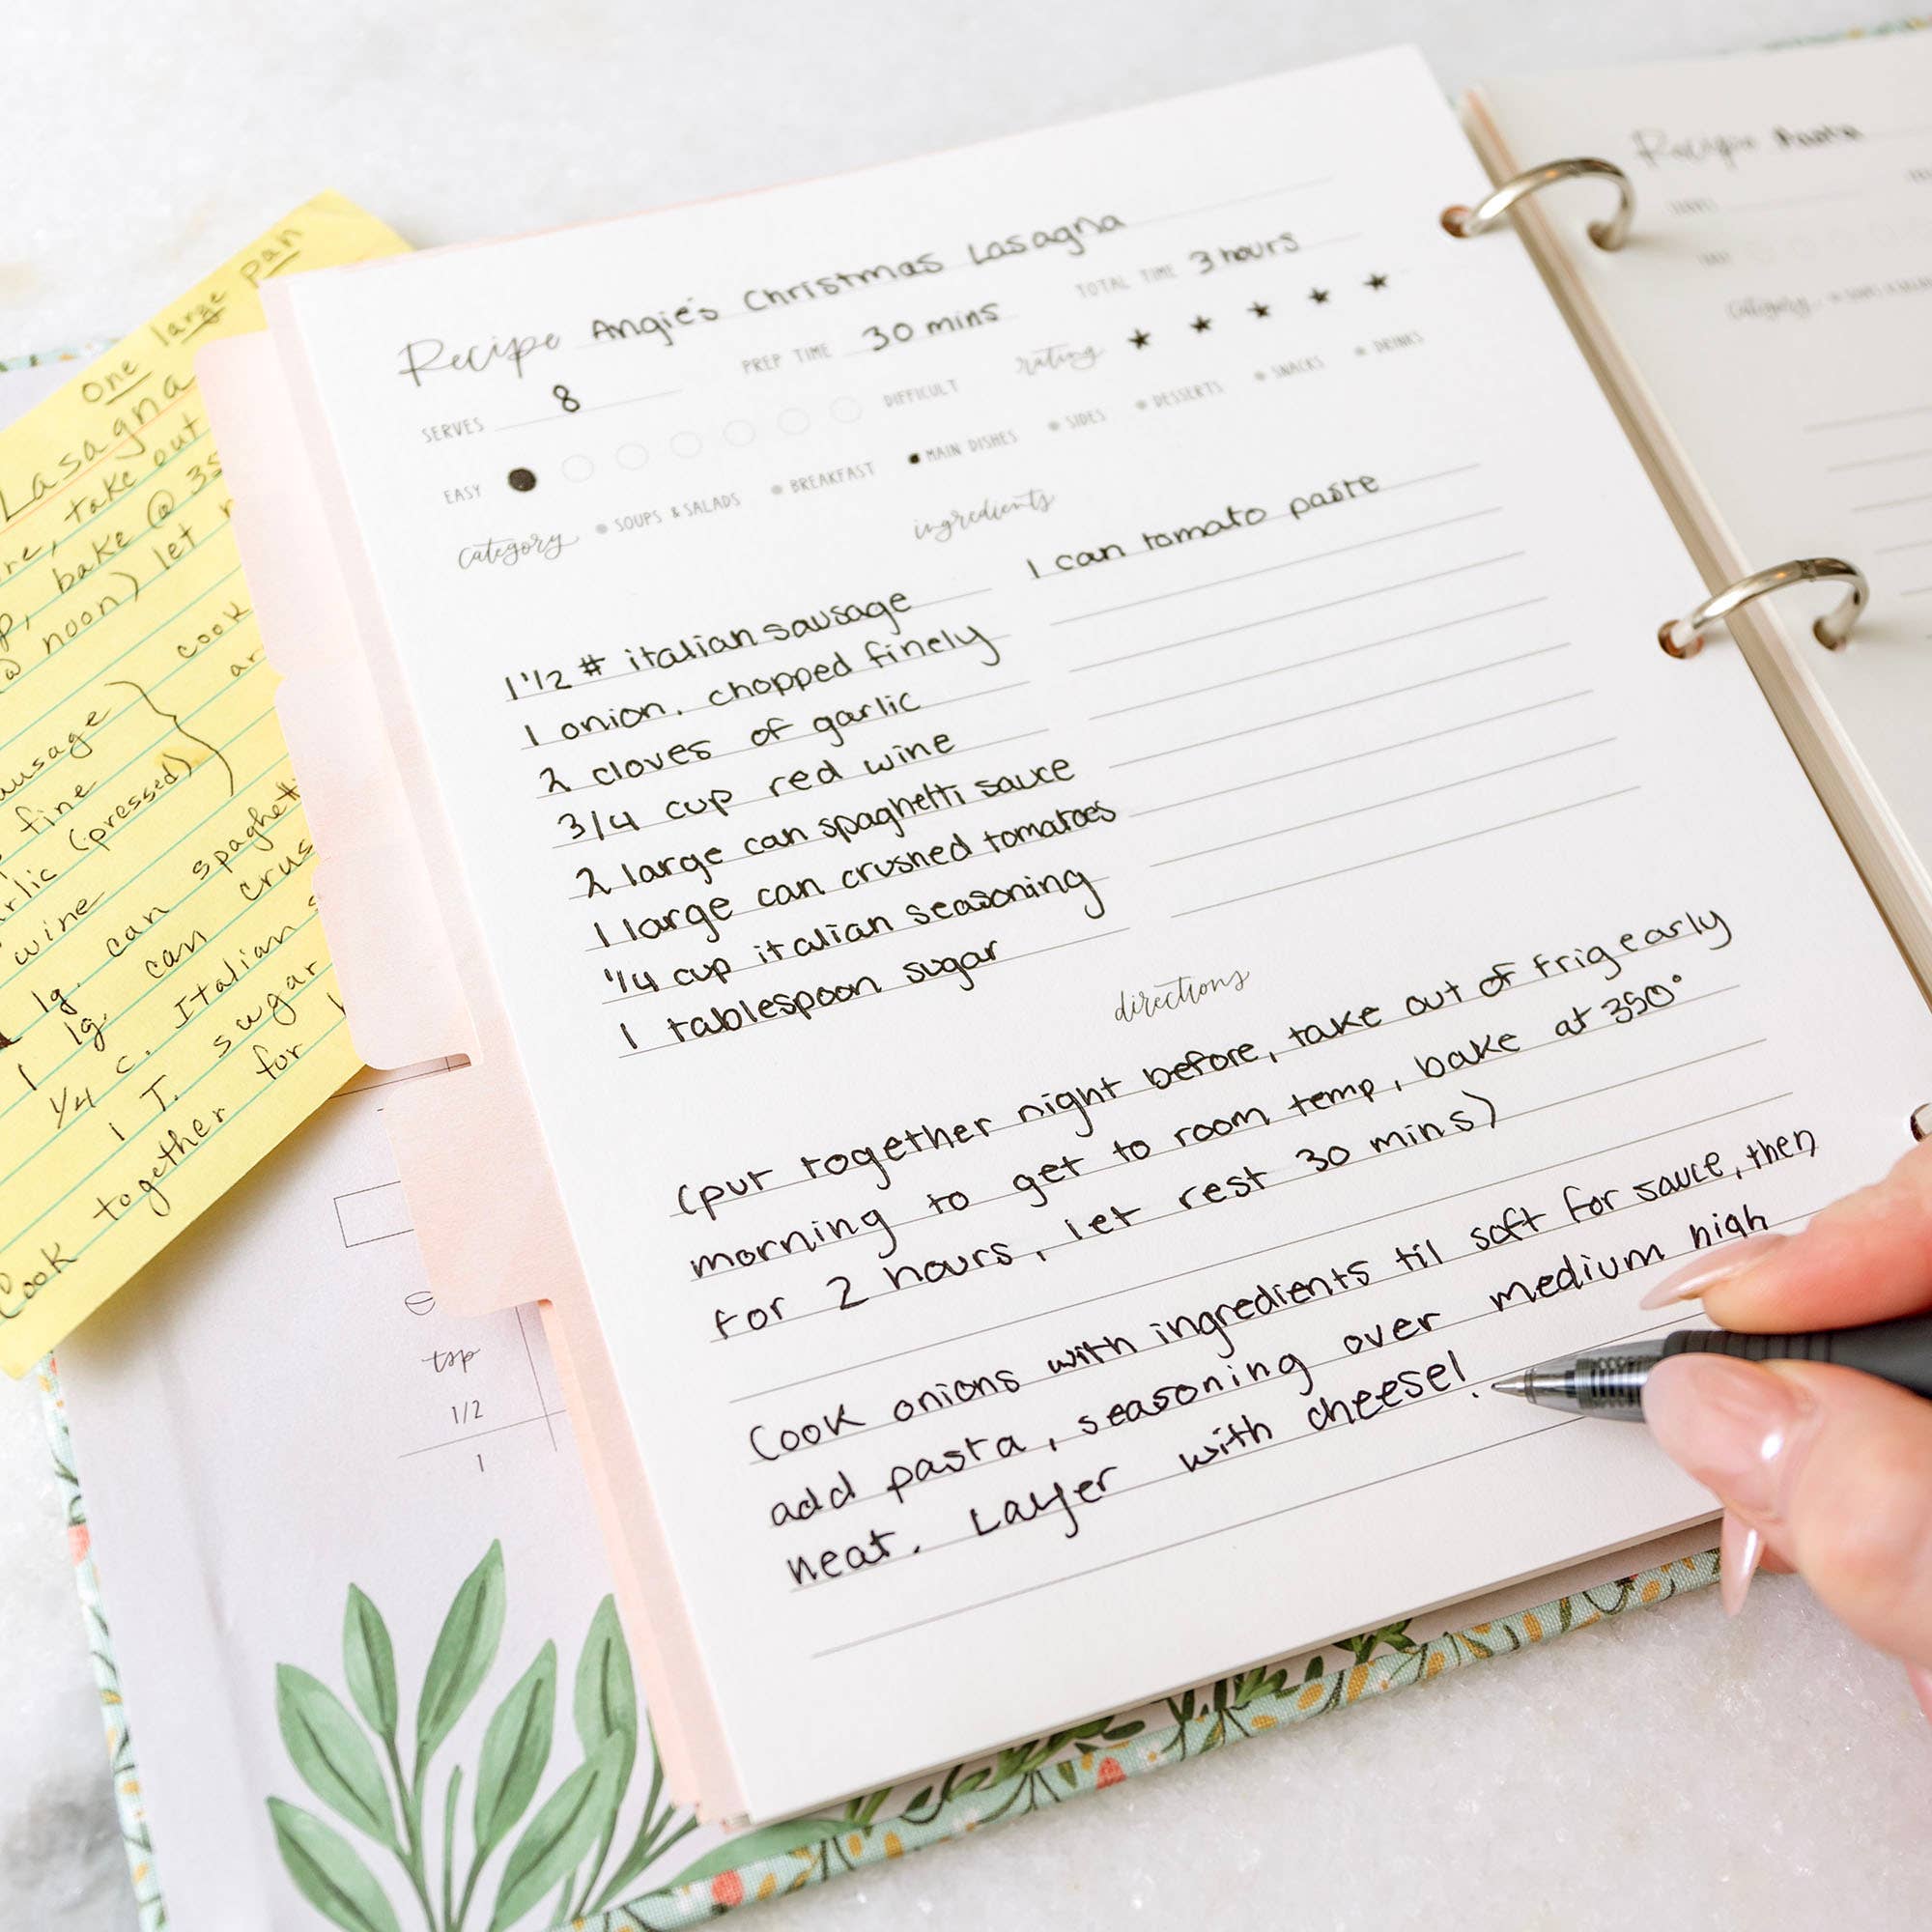 one large pan
Lasagna
take out
bake @ 35
noon) let
cook
fine
(pressed)
wine
lg. can
1 lg. can
1/4 c. Italian
1 T. sugar
Cook together for
tsp
1/2
1
Recipe Angie's Christmas Lasagna
SERVES 8 PREP TIME 30 mins TOTAL TIME 3 hours
EASY DIFFICULT rating ★ ★ ★ ★ ★
category SOUPS & SALADS BREAKFAST MAIN DISHES SIDES DESSERTS SNACKS DRINKS
ingredients
1 1/2 # italian sausage
1 onion, chopped finely
2 cloves of garlic
3/4 cup red wine
2 large can spaghetti sauce
1 large can crushed tomatoes
1/4 cup italian seasoning
1 tablespoon sugar
1 can tomato paste
directions
(put together night before, take out of frig early
morning to get to room temp, bake at 350°
for 2 hours, let rest 30 mins)
Cook onions with ingredients til soft for sauce, then
add pasta, seasoning over medium high
heat. Layer with cheese!
Recipe Pasta
category